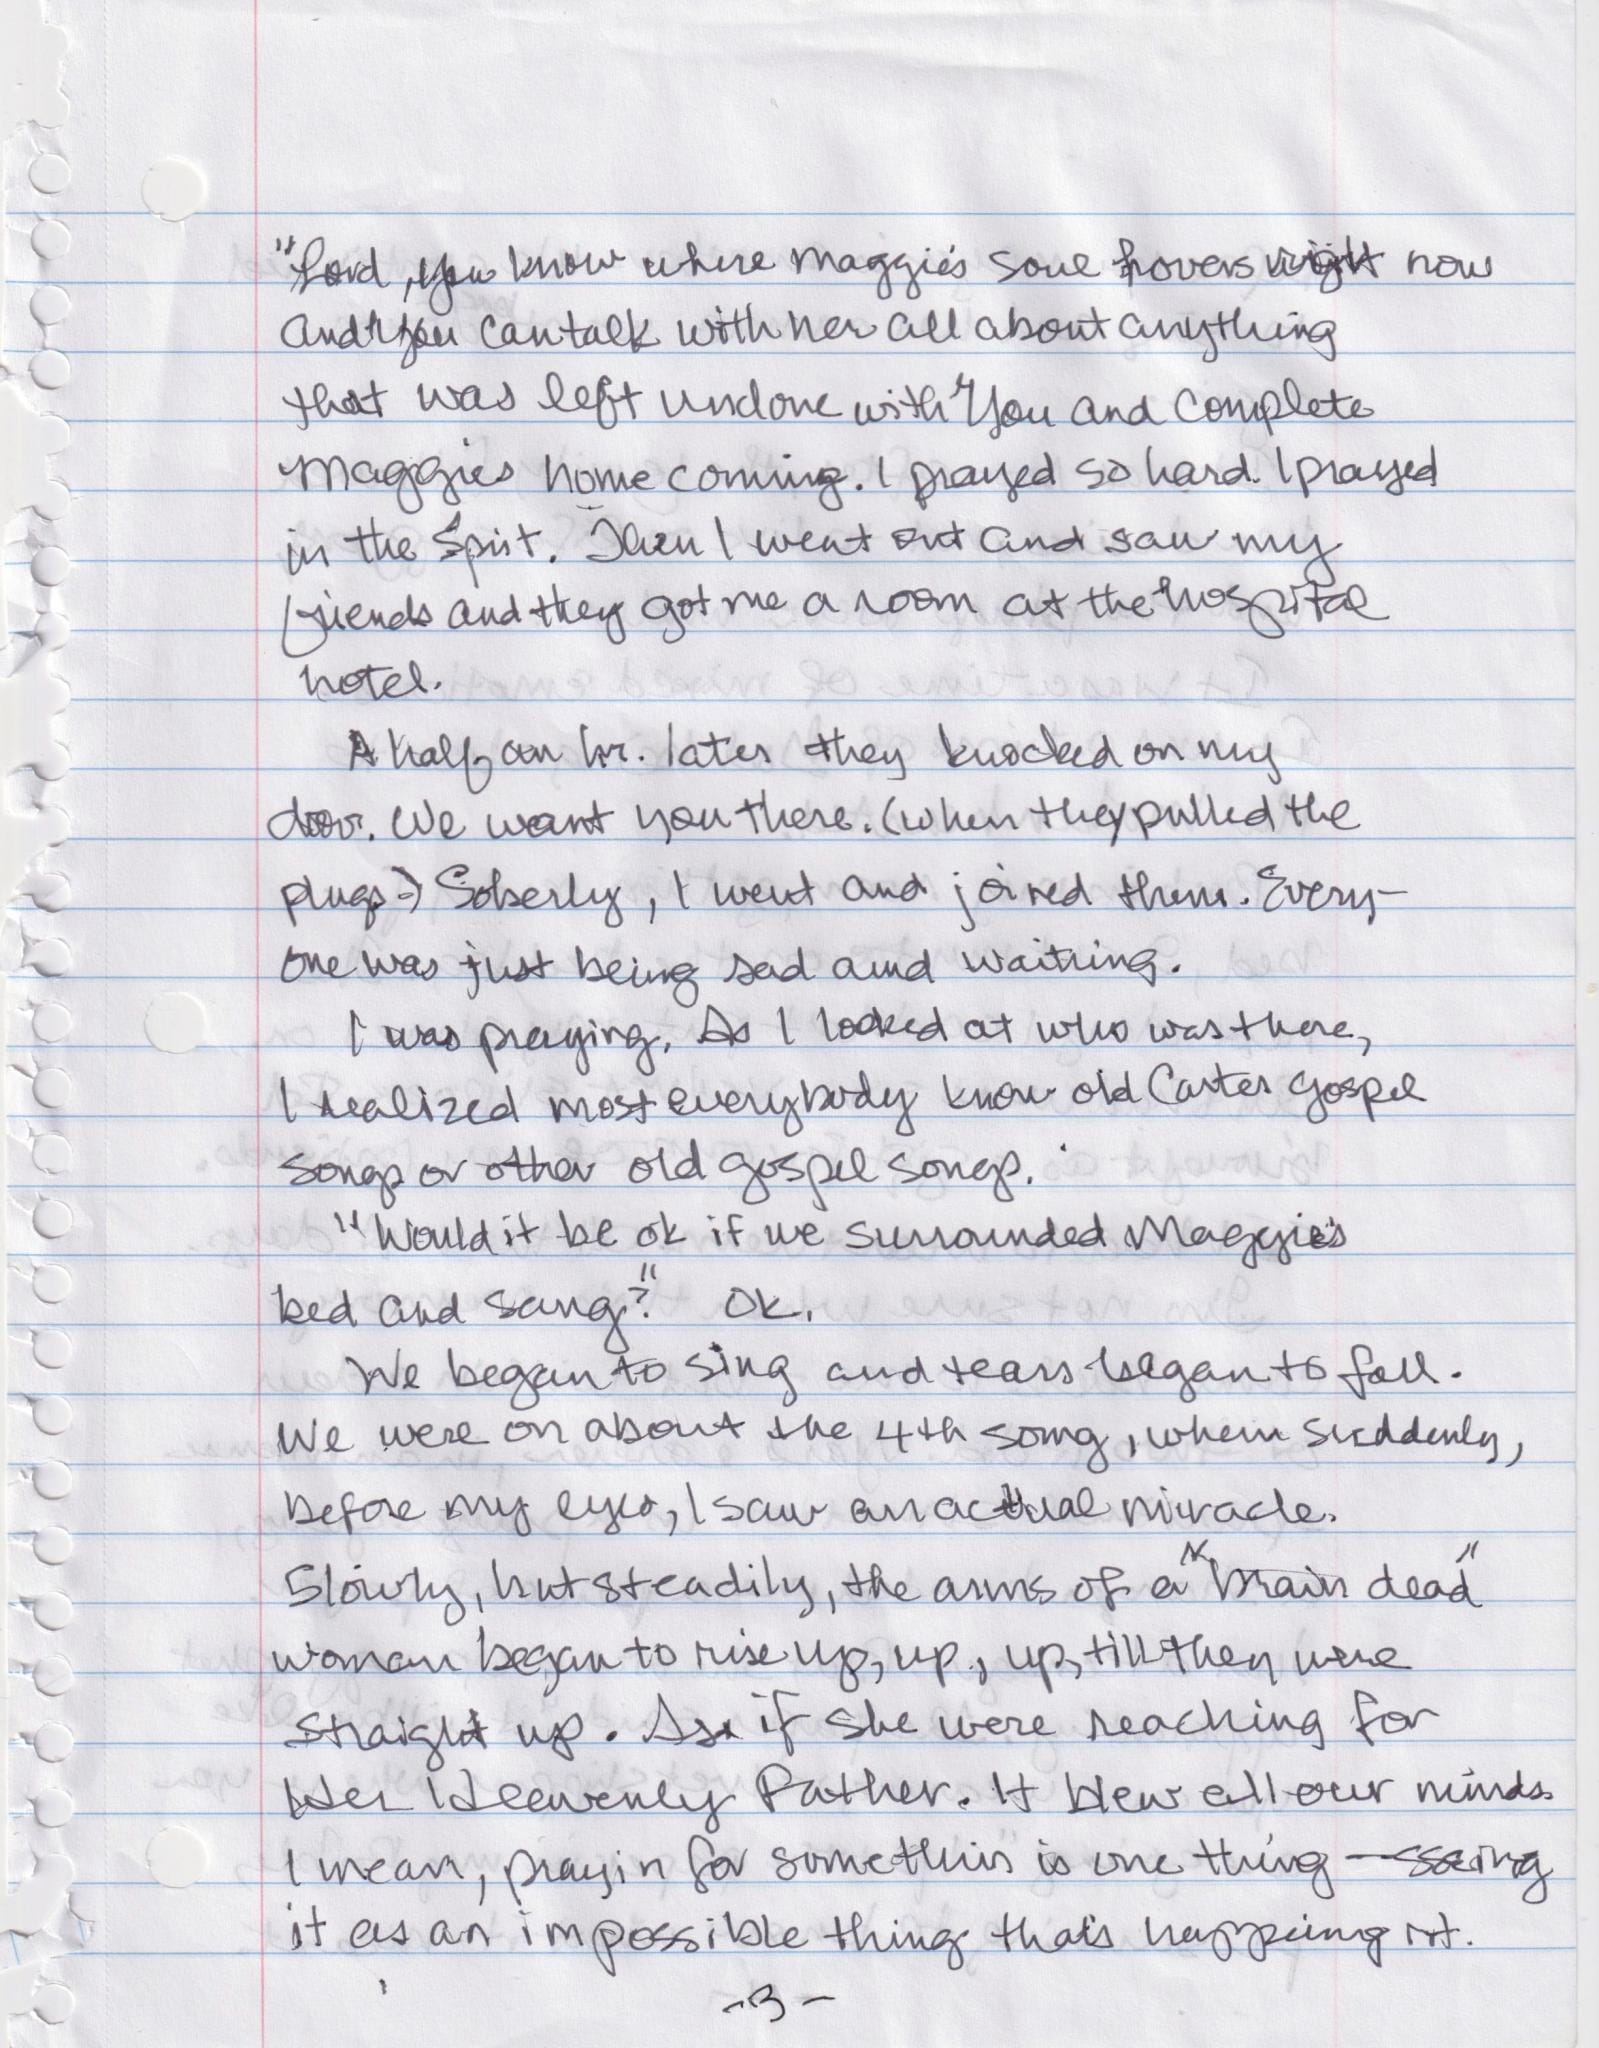 "Lord, you know where Maggie's soul hovers right now
and You can talk with her all about anything
that was left undone with You and complete
Maggies homecoming. I prayed so hard. I prayed
in the Spirit. Then I went out and saw my
friends and they got me a room at the hospital
hotel.
A half an hr. later they knocked on my
door. We want you there. (when they pulled the
plugs.) Soberly, I went and joined them. Every-
one was just being sad and waiting.
I was praying. As I looked at who was there,
I realized most everybody know old Carter gospel
songs or other old gospel songs.
"Would it be ok if we surrounded Maggie's
bed and sang?" OK.
We began to sing and tears began to fall.
We were on about the 4th song, when suddenly,
before my eyes, I saw an actual miracle.
Slowly, but steadily, the arms of a "brain dead"
woman began to rise up, up, up, till they were
straight up. As if she were reaching for
Her Heavenly Father. It blew all our minds.
I mean, prayin for somethin' is one thing — seeing
it as an impossible thing that's happening
- 3 -